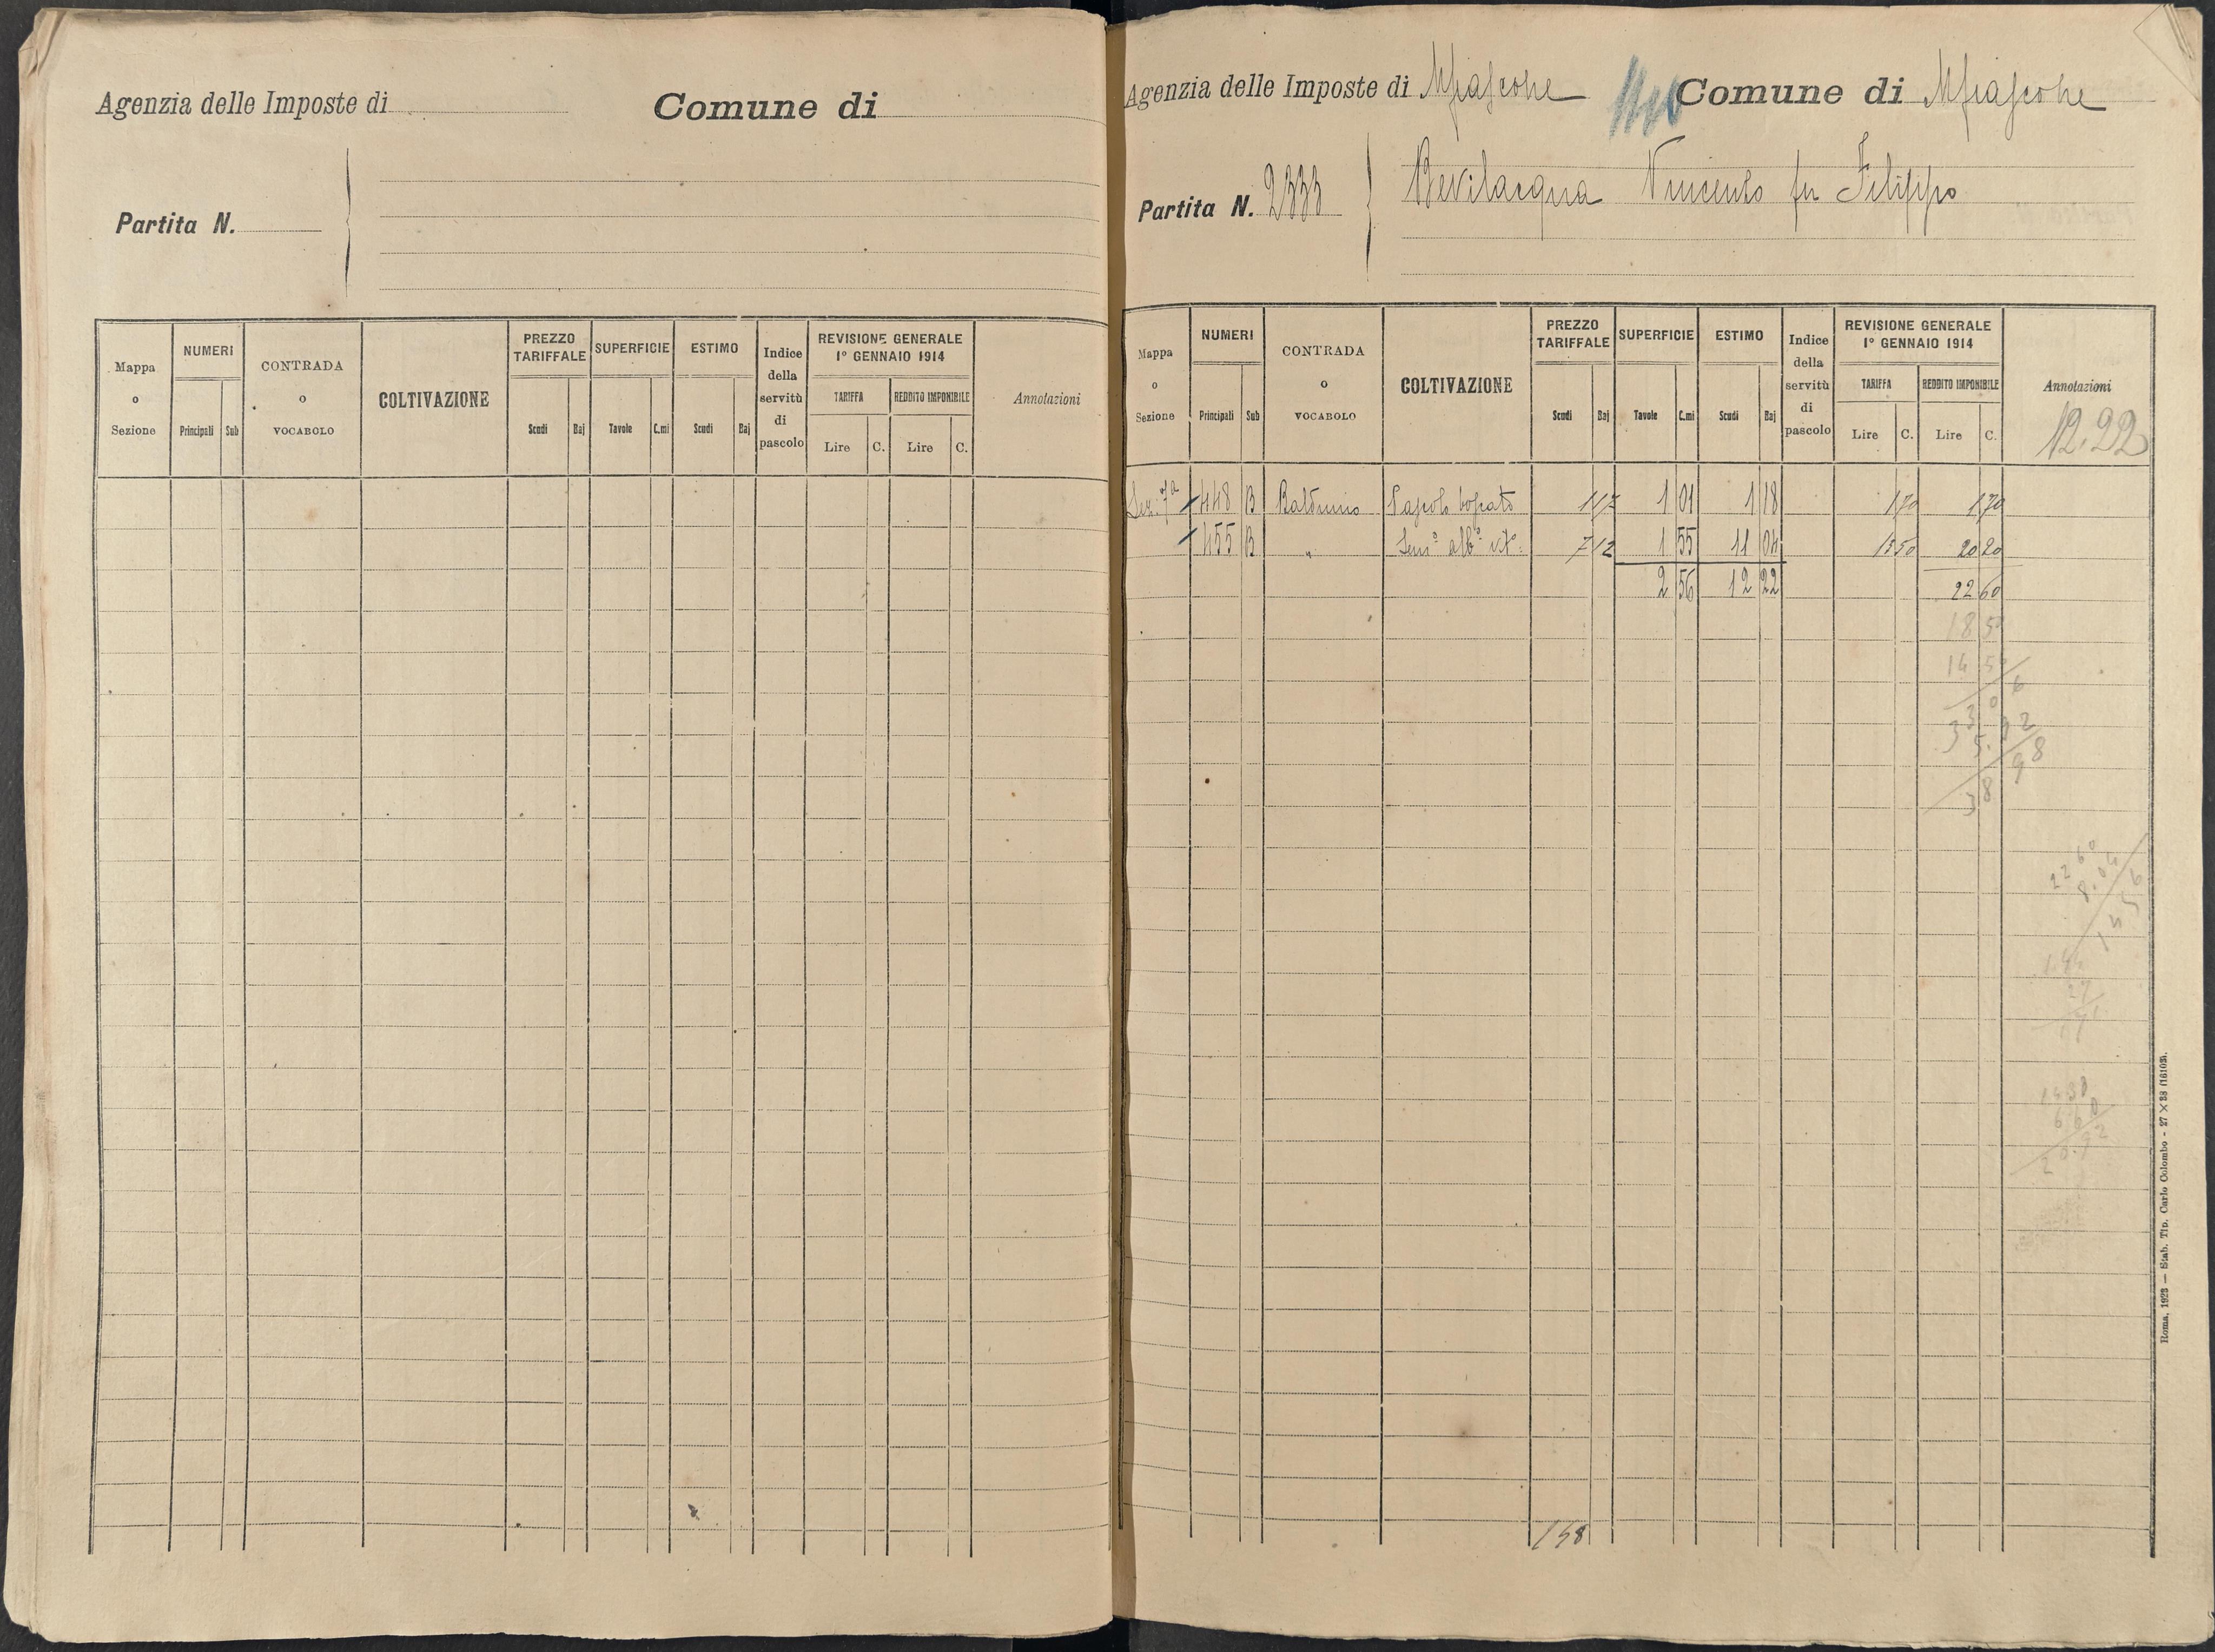 Agenzia delle Imposte di
Comune di
Partita N.
Mappa o Sezione
NUMERI
Principali
Sub
CONTRADA o VOCABOLO
COLTIVAZIONE
PREZZO TARIFFALE
Scudi
Baj
SUPERFICIE
Tavole
C.mi
ESTIMO
Scudi
Baj
Indice della servitù di pascolo
REVISIONE GENERALE
1° GENNAIO 1914
TARIFFA
REDDITO IMPONIBILE
Lire
C.
Lire
C.
Annotazioni
Agenzia delle Imposte di
Comune di
Partita N. 2333
Bevilacqua Vincenzo fu Filippo
Mappa o Sezione
NUMERI
Principali
Sub
CONTRADA o VOCABOLO
COLTIVAZIONE
PREZZO TARIFFALE
Scudi
Baj
SUPERFICIE
Tavole
C.mi
ESTIMO
Scudi
Baj
Indice della servitù di pascolo
REVISIONE GENERALE
1° GENNAIO 1914
TARIFFA
REDDITO IMPONIBILE
Lire
C.
Lire
C.
Annotazioni
12.22
Sez. 7a 448 B Pascolo boscato 1 17 1 01 1 18 1 70 1 70
455 B " Sem° alb° vit° 7 12 1 55 11 04 13 50 20 20
2 56 12 22 22 60
18 5
14 5
22 60
8.04
158
Roma, 1923 — Stab. Tip. Carlo Colombo - 27 × 38 (16103).